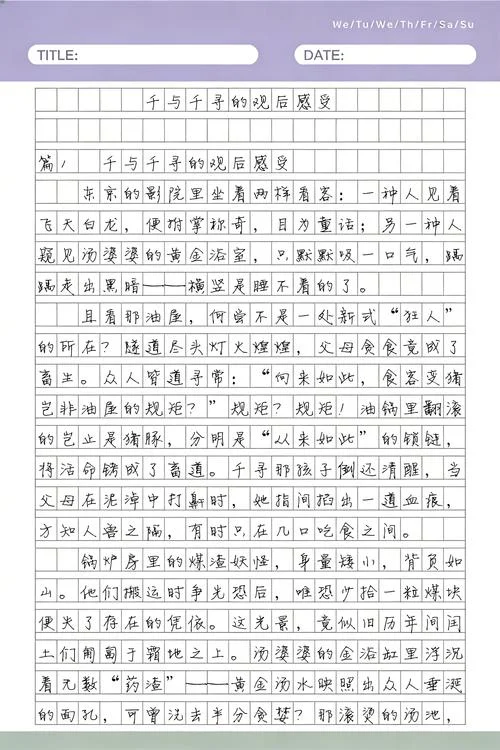 We/Tu/We/Th/Fr/Sa/Su
TITLE:
DATE:
千与千寻的观后感受
篇1 千与千寻的观后感受
东京的影院里坐着两样看客：一种人见着
飞天白龙，便拊掌称奇，目为童话；另一种人
窥见汤婆婆的黄金浴室，只默默吸一口气，踽
踽走出黑暗——横竖是睡不着的了。
且看那油屋，何尝不是一处新式“狂人”
的所在？隧道尽头灯火煌煌，父母贪食竟成了
畜生。众人皆道寻常：“向来如此，食客变猪
岂非油屋的规矩？”规矩？规矩！油锅里翻滚
的岂止是猪豚，分明是“从来如此”的锁链，
将活命锈成了畜道。千寻那孩子倒还清醒，当
父母在泥淖中打鼾时，她指间掐出一道血痕，
方知人兽之隔，有时只在几口吃食之间。
锅炉房里的煤渣妖怪，身量矮小，背负如
山。他们搬运时争先恐后，唯恐少拾一粒煤块
便失了存在的凭依。这光景，竟似旧历年间闰
土们匍匐于霜地之上。汤婆婆的金浴缸里浮沉
着无数“药渣”——黄金汤水映照出众人垂涎
的面孔，可曾洗去半分贪婪？那滚烫的汤池，